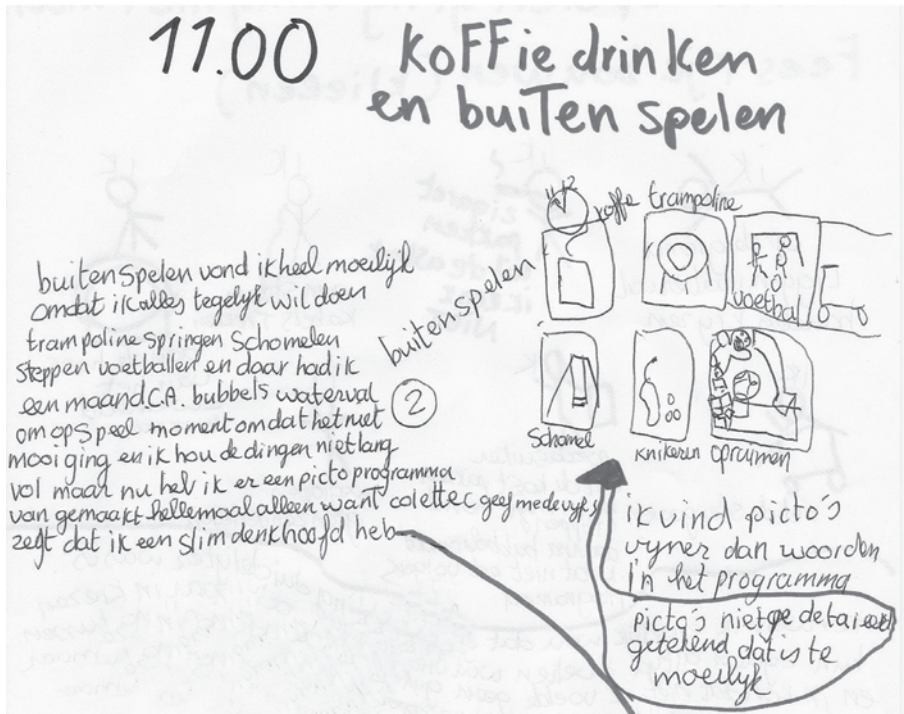 11.00 koffie drinken
en buiten spelen
koffe trampoline
voetbal
buiten spelen
buiten spelen vond ik heel moeilijk
omdat ik alles tegelyk wil doen
trampoline springen schomelen
steppen voetballen en daar had ik
een maand C.A. bubbels waterval
om op speel moment omdat het niet
mooi ging en ik hou de dingen niet lang
vol maar nu heb ik er een picto programma
van gemaakt hellemaal alleen want colette c geef me de wyk's
zegt dat ik een slim denkhoofd heb
2
Schomel
knikeren opruimen
ik vind picto's
vyner dan woorden
in het programma
picto's niet ge detaieerd
getekend dat is te
moeilyk